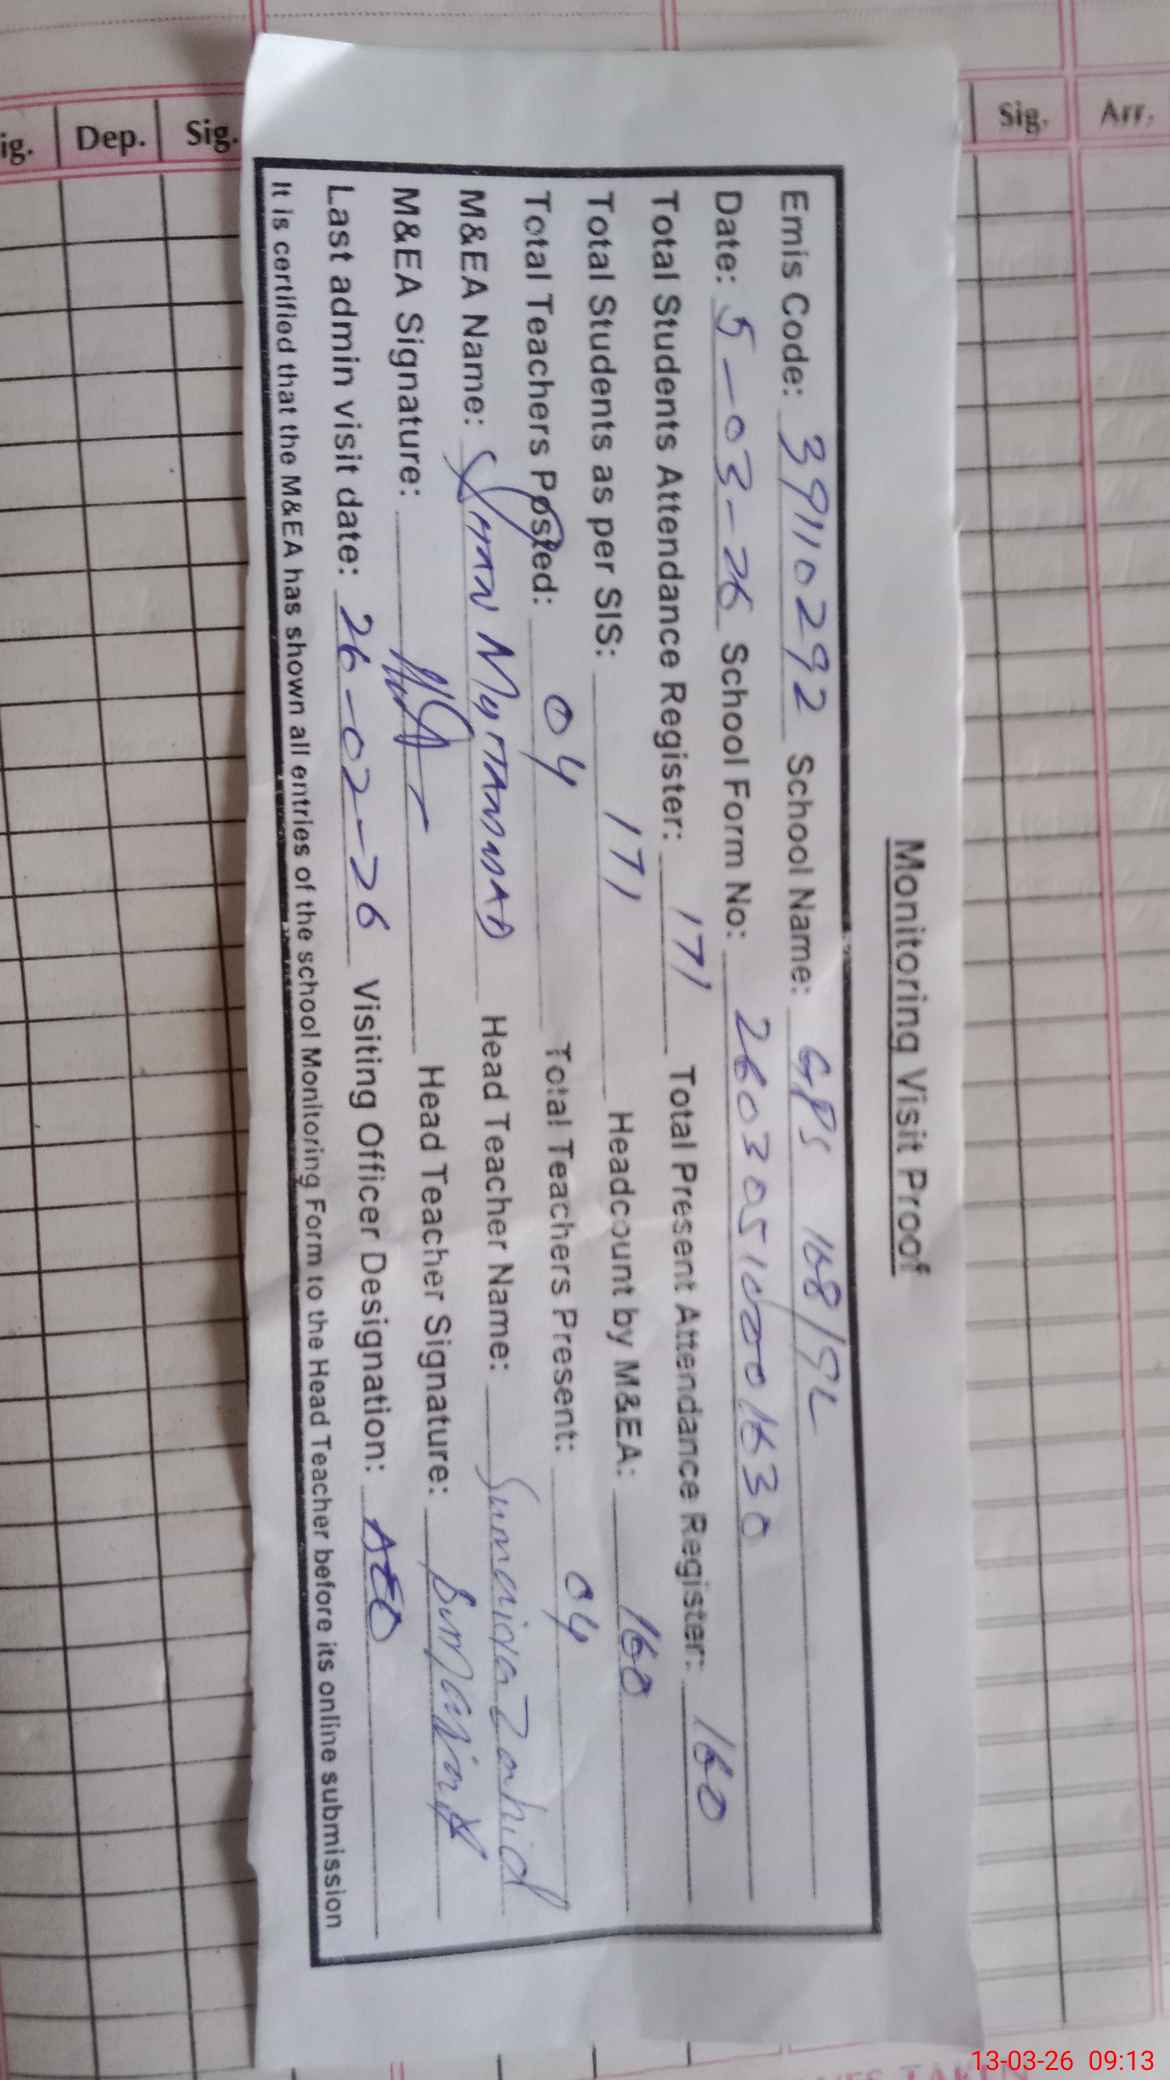 Monitoring Visit Proof
Emis Code: 39110292 School Name: GPS 168/9L
Date: 5-03-26 School Form No: 26030510001630
Total Students Attendance Register: 171 Total Present Attendance Register: 160
Total Students as per SIS: 171 Headcount by M&EA: 160
Total Teachers Posted: 04 Total Teachers Present: 04
M&EA Name: Head Teacher Name: Sumaira Zahid
M&EA Signature: Head Teacher Signature:
Last admin visit date: 26-02-26 Visiting Officer Designation: AEO
It is certified that the M&EA has shown all entries of the school Monitoring Form to the Head Teacher before its online submission
ig. Dep. Sig. Sig. Arr.
13-03-26 09:13